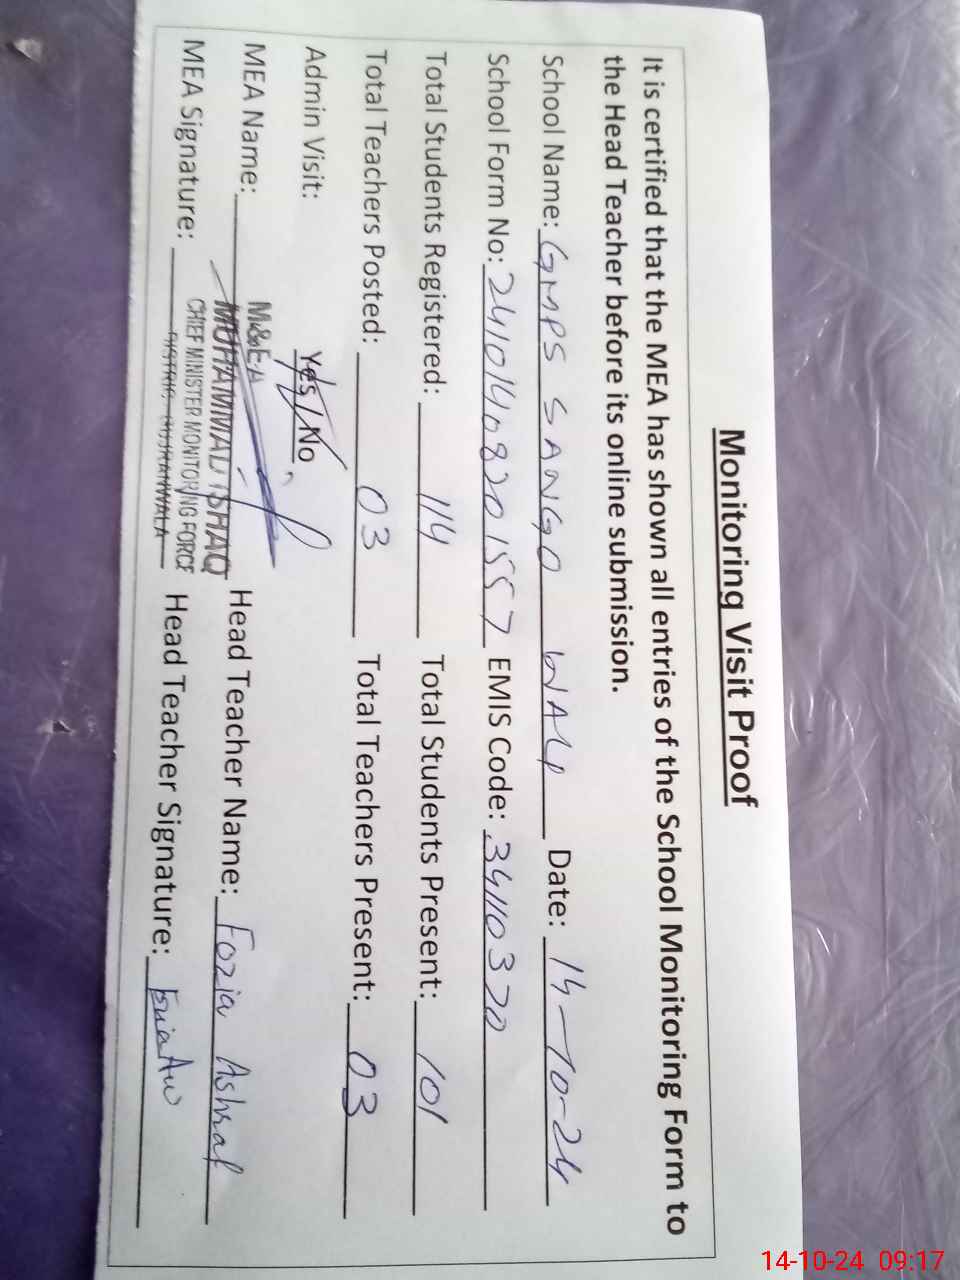 Monitoring Visit Proof
It is certified that the MEA has shown all entries of the School Monitoring Form to
the Head Teacher before its online submission.
School Name: GMPS SANGO WALI Date: 14-10-24
School Form No: 2410140820 1557 EMIS Code: 34110370
Total Students Registered: 114 Total Students Present: 101
Total Teachers Posted: 03 Total Teachers Present: 03
Admin Visit: Yes / No
M&EA
MEA Name: MUHAMMAD ISHAQ Head Teacher Name: Fozia Ashraf
CHIEF MINISTER MONITORING FORCE
MEA Signature: DISTRICT GUJRANWALA Head Teacher Signature:
14-10-24 09:17